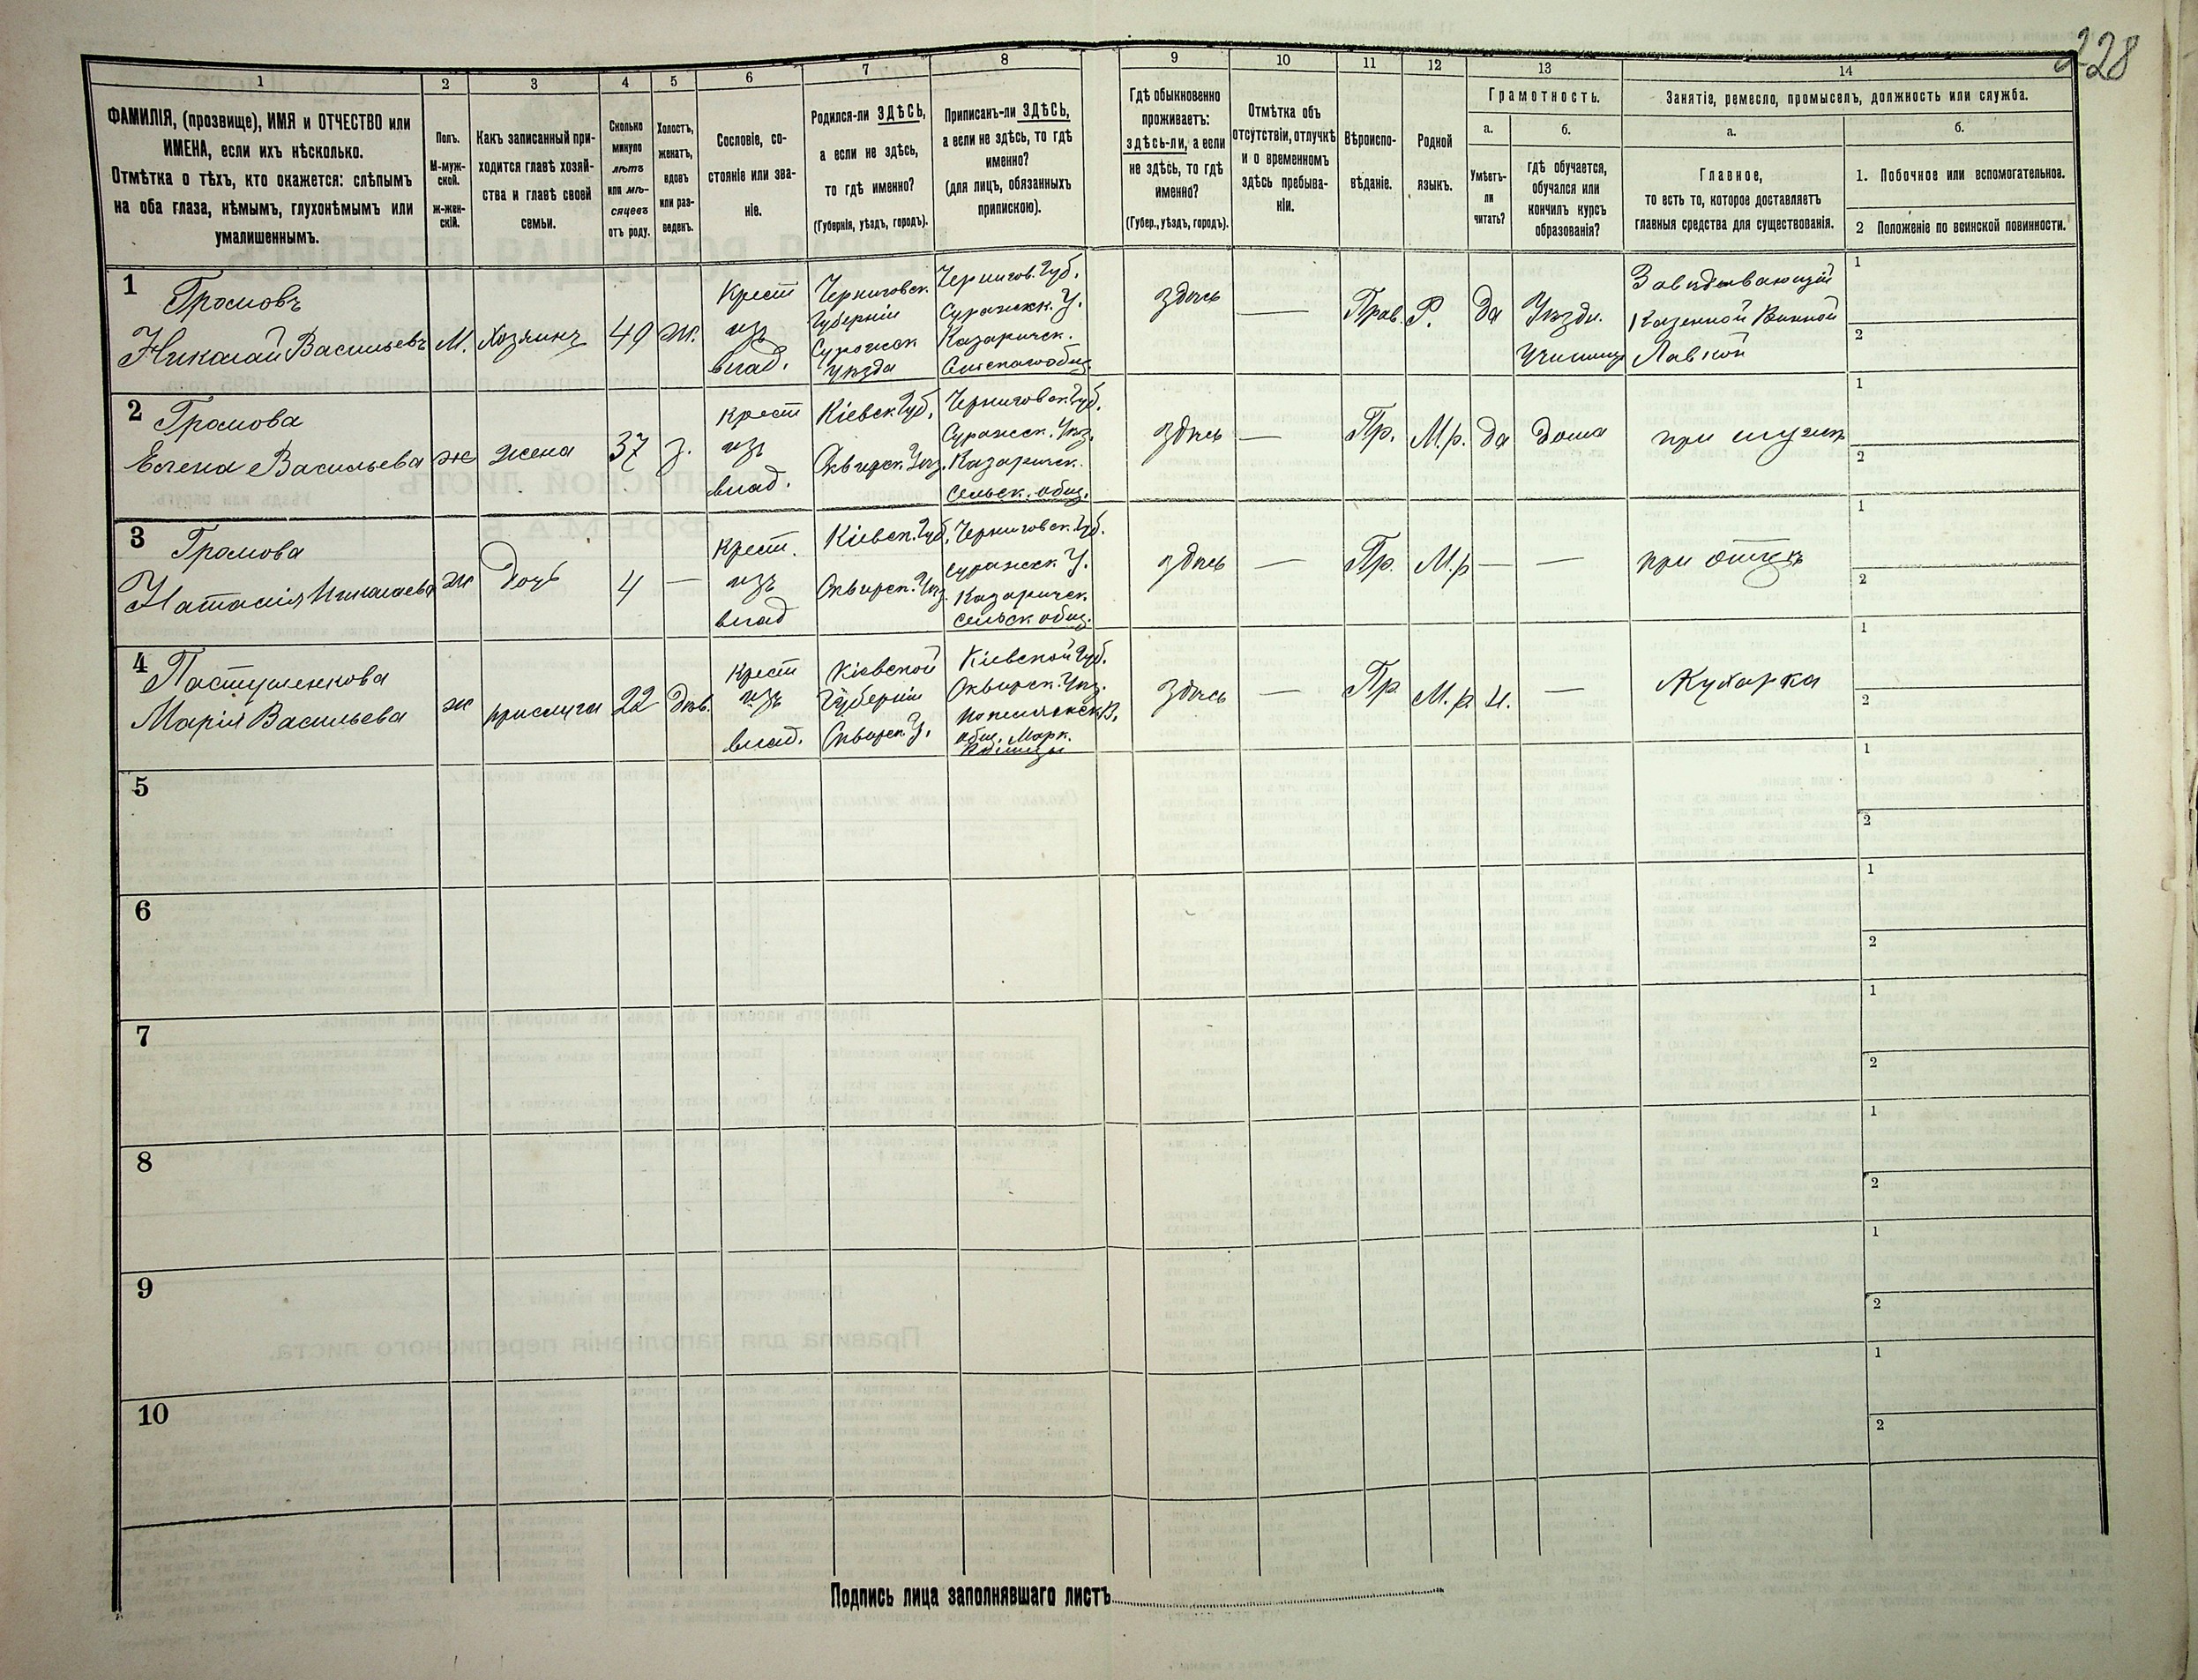 228
1
2
3
4
5
6
7
8
9
10
11
12
13
14
ФАМИЛІЯ, (прозвище), ИМЯ и ОТЧЕСТВО или
ИМЕНА, если ихъ нѣсколько.
Отмѣтка о тѣхъ, кто окажется: слѣпымъ
на оба глаза, нѣмымъ, глухонѣмымъ или
умалишеннымъ.
Полъ.
М-муж-
ской.
ж-жен-
скій.
Какъ записанный при-
ходится главѣ хозяй-
ства и главѣ своей
семьи.
Сколько
минуло
лѣтъ
или мѣ-
сяцевъ
отъ роду.
Холостъ,
женатъ,
вдовъ
или раз-
веденъ.
Сословіе, со-
стояніе или зва-
ніе.
Родился-ли ЗДѢСЬ,
а если не здѣсь,
то гдѣ именно?
(Губернія, уѣздъ, городъ).
Приписанъ-ли ЗДѢСЬ,
а если не здѣсь, то гдѣ
именно?
(для лицъ, обязанныхъ
припискою).
Гдѣ обыкновенно
проживаетъ:
здѣсь-ли, а если
не здѣсь, то гдѣ
именно?
(Губер., уѣздъ, городъ).
Отмѣтка объ
отсутствіи, отлучкѣ
и о временномъ
здѣсь пребыва-
ніи.
Вѣроиспо-
вѣданіе.
Родной
языкъ.
Грамотность.
а.
б.
Умѣетъ-
ли
читать?
гдѣ обучается,
обучался или
кончилъ курсъ
образованія?
Занятіе, ремесло, промыселъ, должность или служба.
а.
б.
Главное,
то есть то, которое доставляетъ
главныя средства для существованія.
1. Побочное или вспомогательное.
2 Положеніе по воинской повинности.
1
Громовъ
Николай Васильевъ
М.
Хозяинъ
49
ж.
Крест
изъ
влад.
Черниговск.
Губерніи
Суражск
Уѣзда
Чернигов. Губ.
Суражск. У.
Казаричск.
здѣсь
—
Прав.
Р.
да
Уѣздн.
Училищ
Завѣдывающій
Казенной Винной
Лавкой
1
2
2
Громова
Елена Васильева
ж
жена
37
з.
крест
изъ
влад.
Кіевск. Губ.
Сквирск. Уѣз.
Черниговск. Губ.
Суражск. Уѣз.
Казаричск.
сельск. общ.
здѣсь
—
Пр.
М.р.
да
дома
при мужѣ
1
2
3
Громова
Наталія Николаева
ж
дочь
4
—
крест.
изъ
влад
Кіевск. Губ.
Сквирск. Уѣз.
Черниговск. Губ.
Суражск У.
Казаричск.
сельск общ.
здѣсь
—
Пр.
М.р
—
—
при отцѣ
1
2
4
Пастушенкова
Марія Васильева
ж
прислуга
22
дѣв.
крест
изъ
влад.
Кіевской
Губерніи
Сквирск. У.
Кіевской Губ.
Сквирск. Уѣз.
общ. Марк.
здѣсь
—
Пр
М.р
н.
—
Кухарка
1
2
5
1
2
6
1
2
7
1
2
8
1
2
9
1
2
10
1
2
Подпись лица заполнявшаго листъ